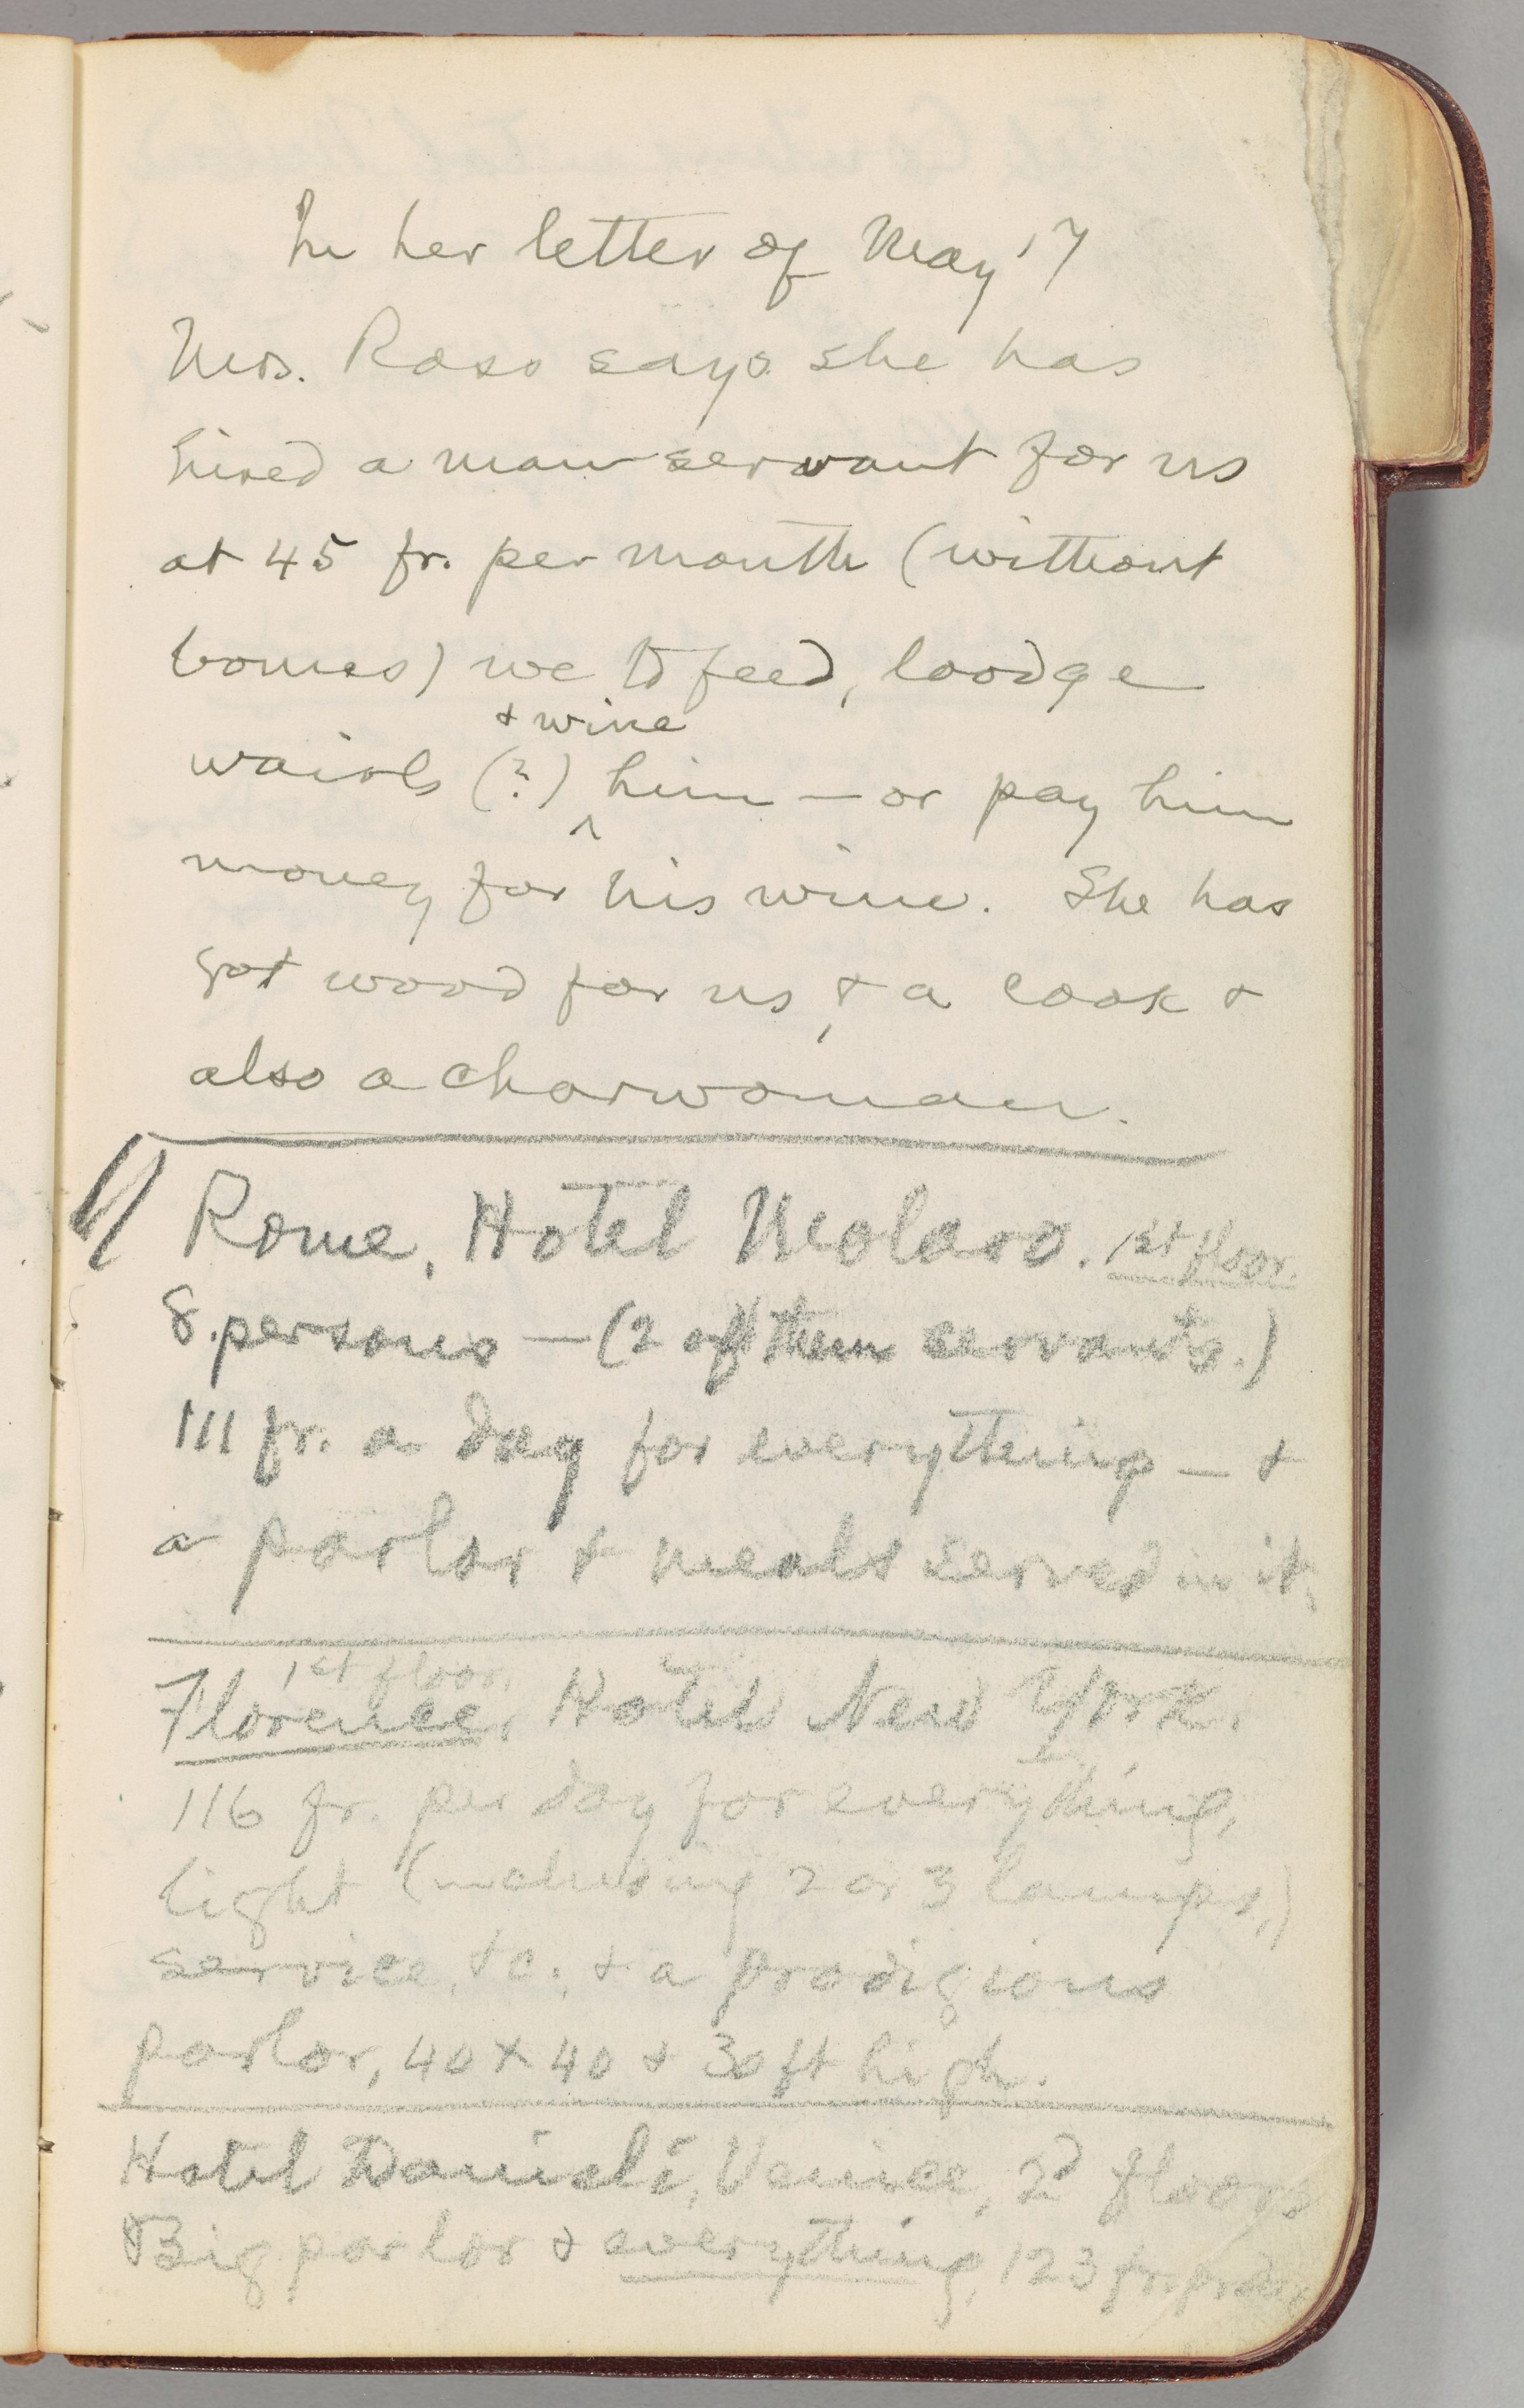 In her letter of May 17
Mrs. Ross says she has
hired a man servant for us
at 45 fr. per month (without
bonus) we to feed, loodge
+ wine
(?) him — or pay him
money for his wine. She has
got wood for us, & a cook &
also a charwoman.
Rome, Hotel Molaro. 1st floor.
8 persons — (2 of them servants.)
111 fr. a day for everything — &
a parlor & meals served in it.
1st floor.
Florence, Hotel New York.
116 fr. per day for everything,
light (including 2 or 3 lamps,)
service, &c., & a prodigious
parlor, 40 x 40 & 30 ft high.
Hotel Danieli, Venice, 2d floor
Big parlor & everything, 123 fr.